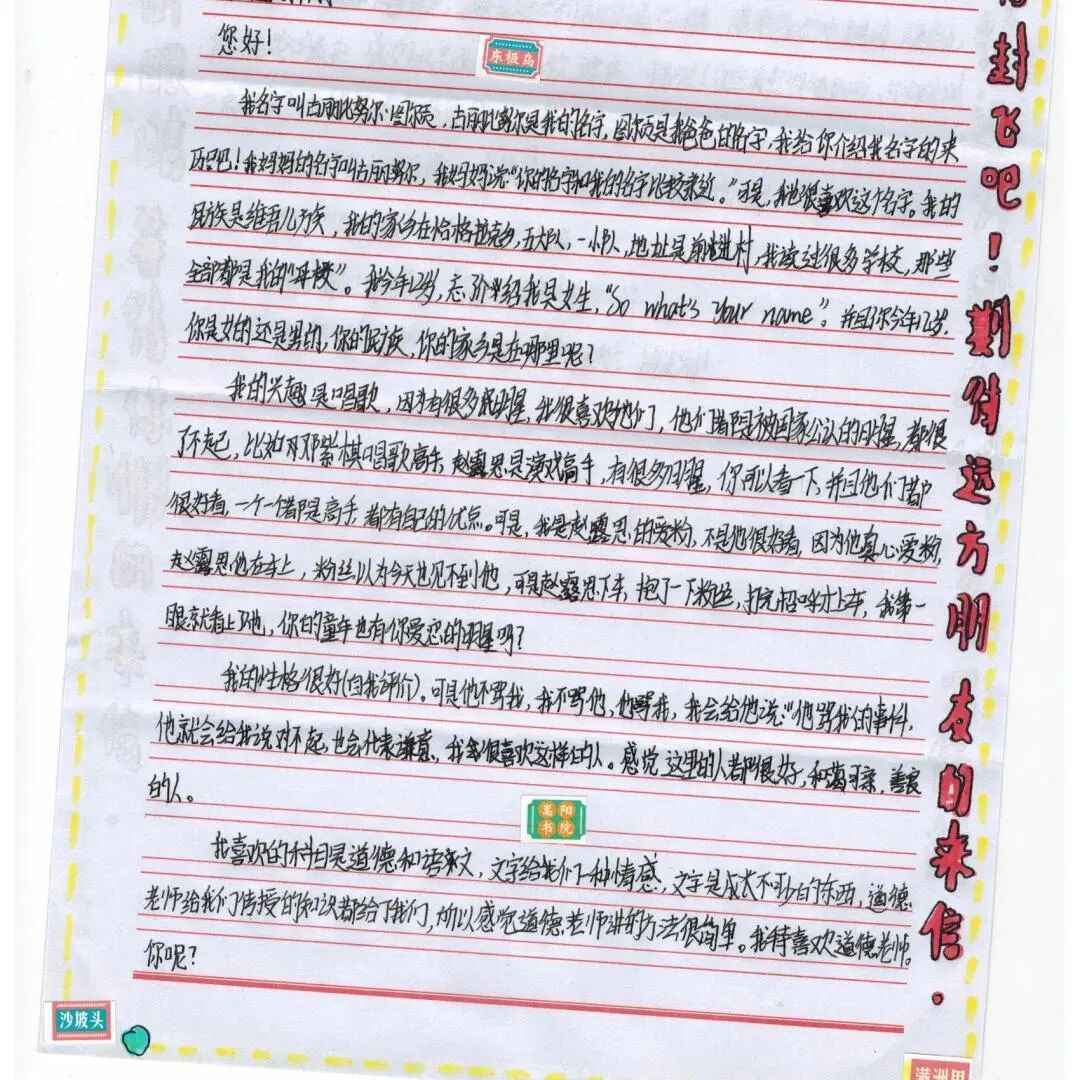 您好！
东极岛
我名字叫古丽比努尔·图尔贡，古丽比努尔是我的名字，图尔贡是我爸爸的名字，我给你介绍我名字的来
历吧！我妈妈的名字叫古丽努尔，我妈妈说：“你的名字和我的名字比较亲近。”可是，我也很喜欢这个名字。我的
民族是维吾儿族，我的家乡在恰格拉克乡，五大队，一小队，地址是前进村，我读过很多学校，那些
全部都是我的“母校”。我今年12岁，忘介绍我是女生，“So what's your name”，并且你今年几岁，
你是女的还是男的，你的民族，你的家乡是在哪里呢？
我的兴趣是唱歌，因为有很多明星，我很喜欢他们，他们都是被国家公认的明星，都很
了不起，比如邓紫棋唱歌高手，赵露思是演戏高手，有很多明星，你可以看一下，并且他们都
很好看，一个一个都是高手，都有自己的优点。可是，我是赵露思的爱粉，不是他很好看，因为他真心爱粉，
赵露思他在车上，粉丝以为今天也见不到他，可是赵露思下车，抱了一下粉丝，打完招呼才上车，我第一
眼就看上了他，你的童年也有你爱忍的明星吗？
我的性格很好(自我评价)。可是他不骂我，我不骂他，他骂我，我会给他说：“他骂我的事件，
他就会给我说对不起，也会代表谦意，我很喜欢这样的人。感觉这里的人都很好，和蔼可亲，善良
的人。
嵩阳
书院
我喜欢的科目是道德和语文，文字给我们一种情感，文字是成长不可少的东西，道德
老师给我们传授的知识都给了我们，所以感觉道德老师讲的方法很简单。我特喜欢道德老师。
你呢？
封飞吧！期待远方朋友的来信.
沙坡头
满洲里